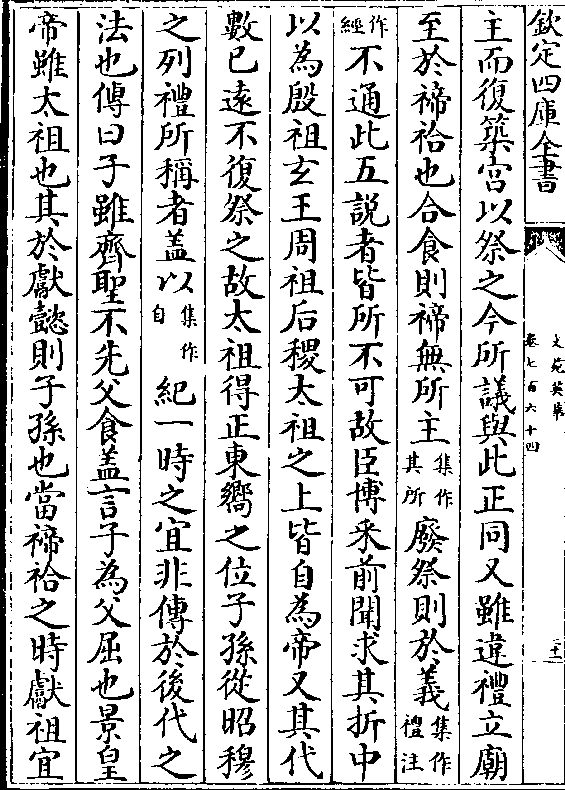 欽定四庫全書
文苑英華
卷七百六十四
主而復築宮以祭之今所議與此正同又雖違禮立廟
至於禘祫也合食則禘無所主集作其所廢祭則於義集作禮注
作經不通此五説者皆所不可故臣博采前聞求其折中
以為殷祖玄王周祖后稷太祖之上皆自為帝又其代
數已遠不復祭之故太祖得正東嚮之位子孫從昭穆
之列禮所稱者盖以集作自紀一時之宜非傳於後代之
法也傳曰子雖齊聖不先父食盖言子為父屈也景皇
帝雖太祖也其於獻懿則子孫也當禘祫之時獻祖宜